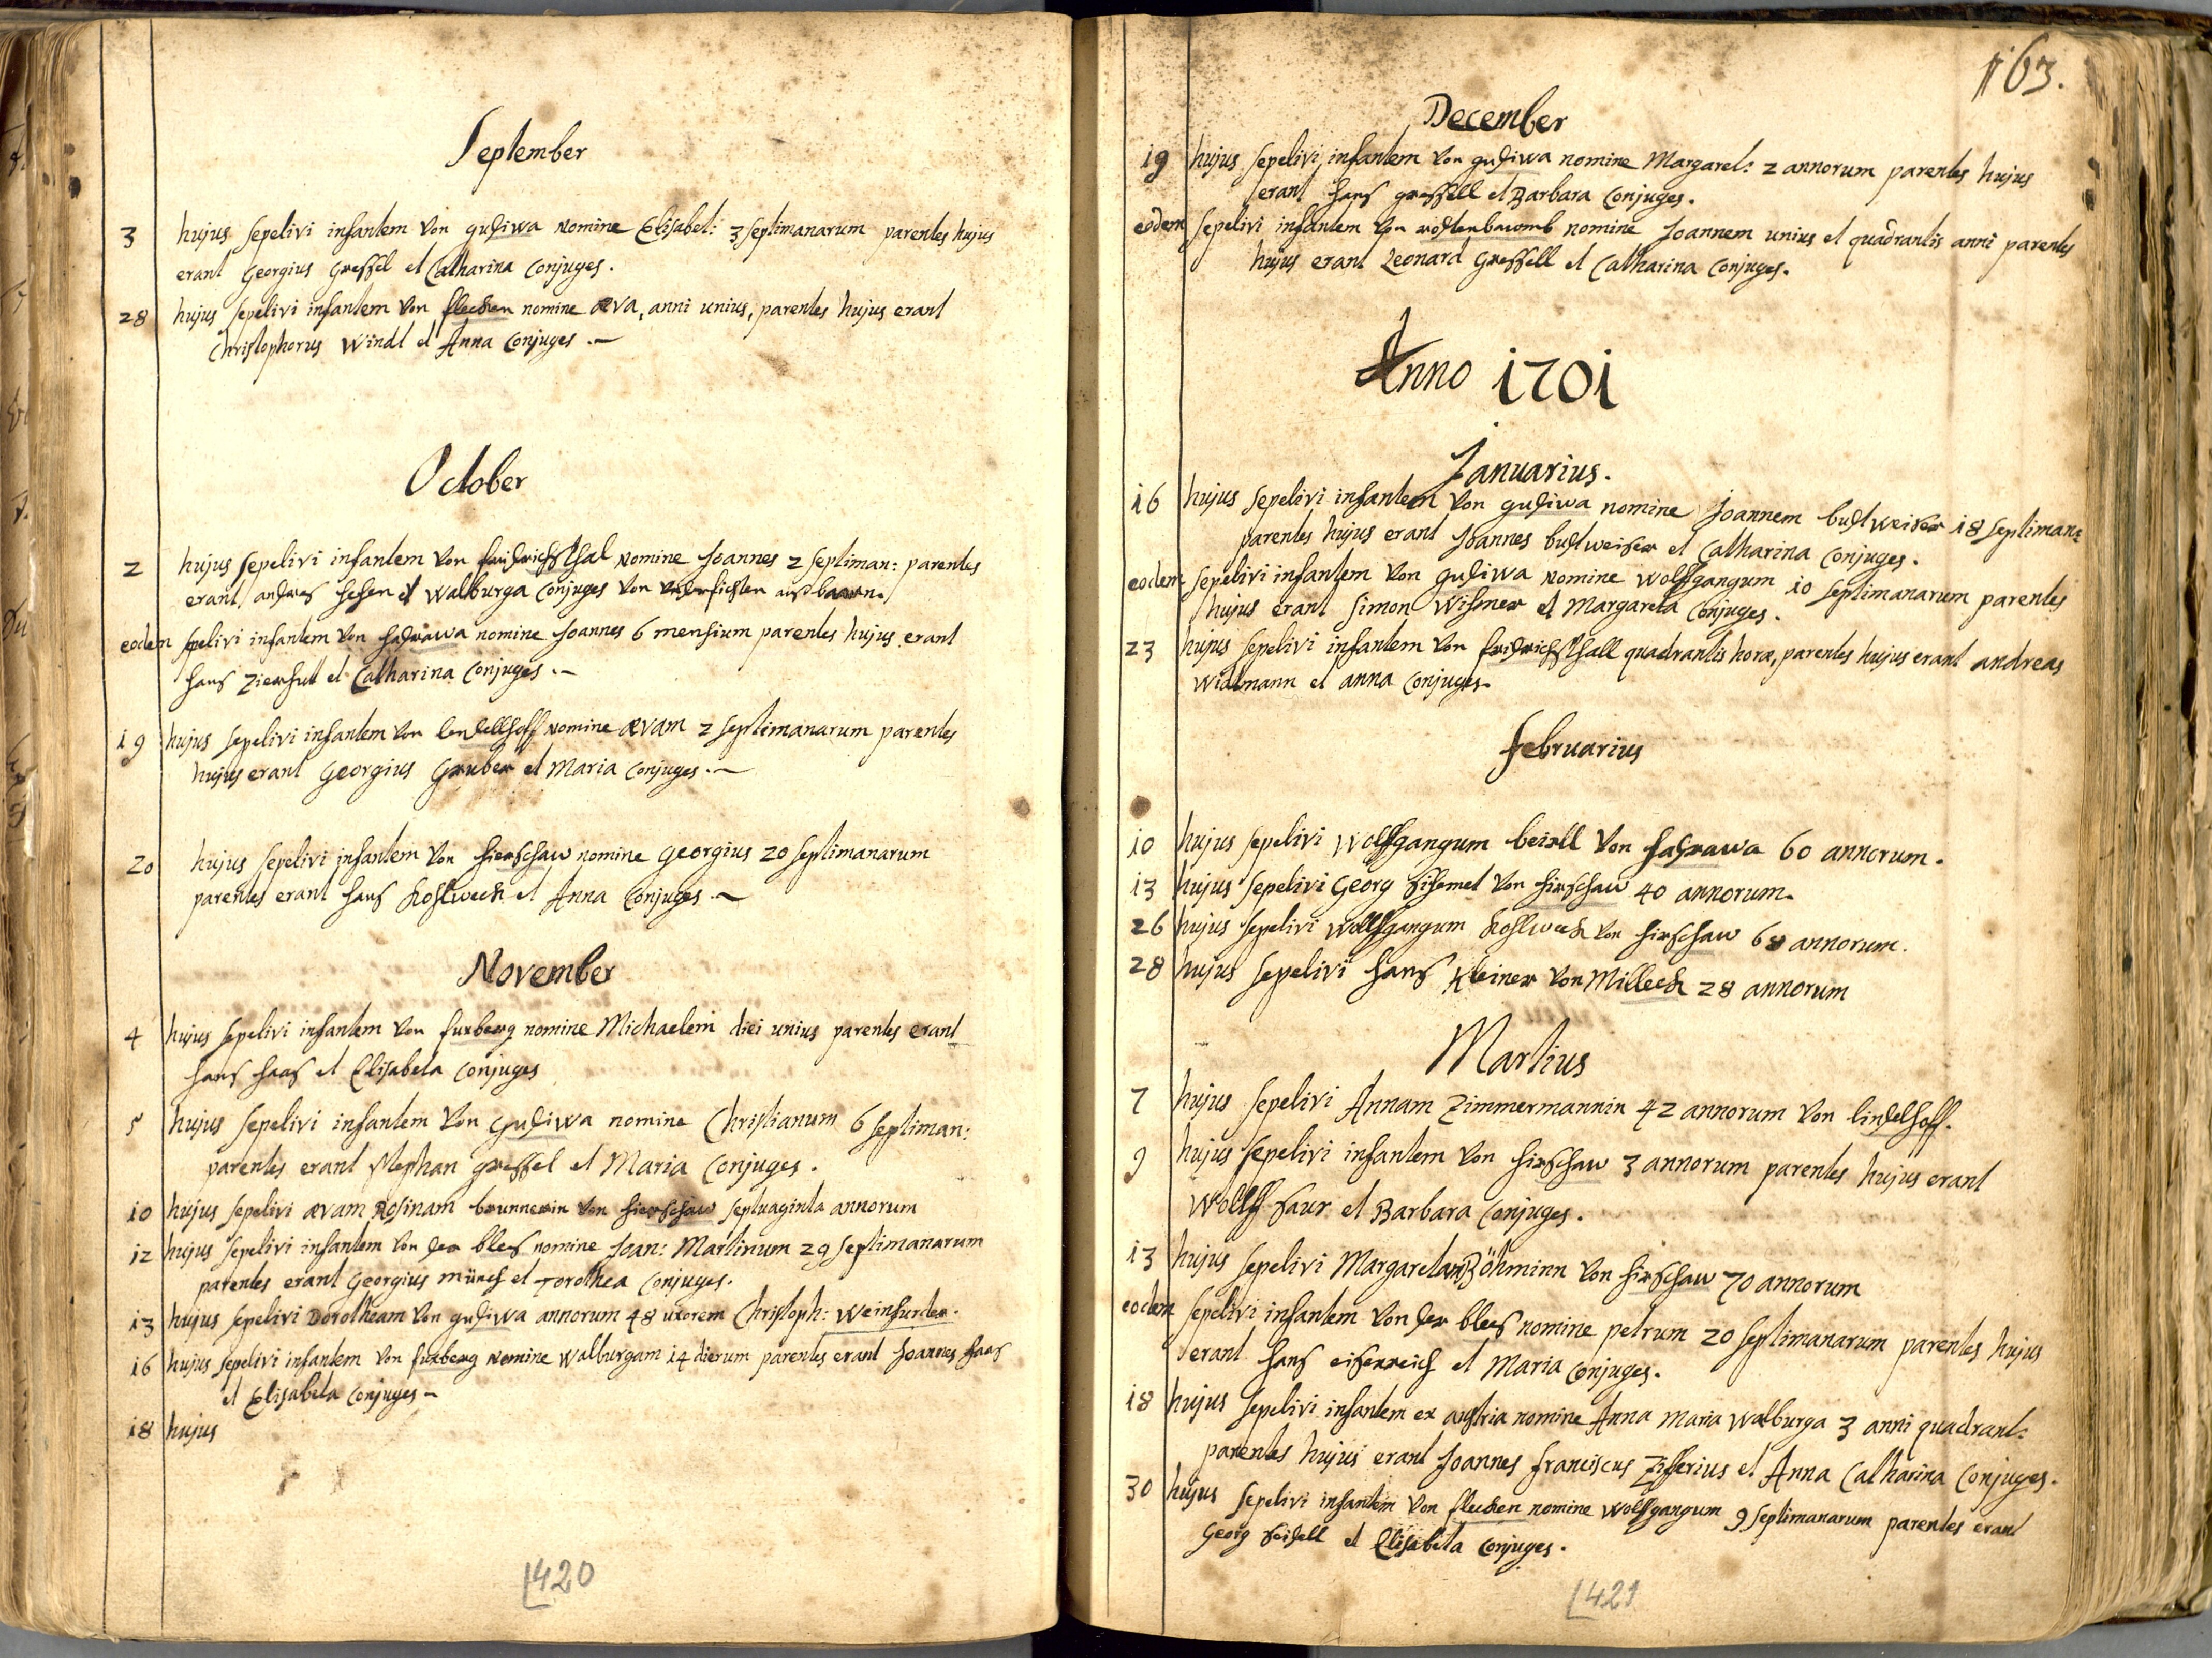 September
3 hujus sepelivi infantem von gudiwa nomine Elisabet: 3 septimanarum parentes hujus
erant Georgius Gressel et Catharina Conjuges.
28 hujus sepelivi infantem von flecken nomine æva, anni unius, parentes hujus erant
Christophorus Windl et Anna Conjuges.—
October
2 hujus sepelivi infantem von fridrichsthal nomine Joannes 2 septiman: parentes
erant andres et Walburga Conjuges von
eodem sepelivi infantem von hadrawa nomine Joannes 6 mensium parentes hujus erant
hans Zierhut et Catharina Conjuges.—
19 hujus sepelivi infantem von lendellhoff nomine ævam 2 septimanarum parentes
hujus erant Georgius Gruber et Maria Conjuges.—
20 hujus sepelivi infantem von hierschaw nomine Georgius 20 septimanarum
parentes erant hans Kohlweck et Anna Conjuges.—
November
4 hujus sepelivi infantem von furberg nomine Michaelem diei unius parentes erant
hans haas et Elisabeta Conjuges
5 hujus sepelivi infantem von Gudiwa nomine Christianum 6 septiman:
parentes erant Stephan gressel et Maria Conjuges.
10 hujus sepelivi ævam Rosinam brunnerin von hierschaw septuaginta annorum
12 hujus sepelivi infantem von der bles nomine Joan: Martinum 29 septimanarum
parentes erant Georgius münch et Torothea Conjuges.
13 hujus sepelivi Dorotheam von gudiwa annorum 48 uxorem Christoph: Weinfurter.
16 hujus sepelivi infantem von furberg nomine Walburgam 14 dierum parentes erant Joannes haas
et Elisabeta Conjuges—
18 hujus
420
163.
December
19 hujus sepelivi infantem von gudiwa nomine Margaret: 2 annorum parentes hujus
erant hans gressell et Barbara Conjuges.
eodem sepelivi infantem von nomine Joannem unius et quadrantis anni parentes
hujus erant Leonard Gressell et Catharina Conjuges.
Anno 1701
Januarius.
16 hujus sepelivi infantem von gudiwa nomine Joannem budtweiser 18 septiman:
parentes hujus erant Joannes budtweiser et Catharina Conjuges.
eodem sepelivi infantem von Gudiwa nomine Wolfgangum 10 septimanarum parentes
hujus erant Simon Wismer et Margareta Conjuges.
23 hujus sepelivi infantem von fridrichsthall quadrantis horæ, parentes hujus erant andreas
Widmann et anna Conjuges.
Februarius
10 hujus sepelivi Wolfgangum beirll von hadrawa 60 annorum.
13 hujus sepelivi Georg von hirschaw 40 annorum.
26 hujus sepelivi Wolfgangum Kohlweck von hirschaw 68 annorum.
28 hujus sepelivi hans Kleiner von Milleck 28 annorum
Martius
7 hujus sepelivi Annam Zimmermannin 42 annorum von lindelhoff.
9 hujus sepelivi infantem von hirschaw 3 annorum parentes hujus erant
Wolff saur et Barbara Conjuges.
13 hujus sepelivi Margaretam Böhminn von hirschaw 70 annorum
eodem sepelivi infantem von der bles nomine petrum 20 septimanarum parentes hujus
erant hans eisenreich et Maria Conjuges.
18 hujus sepelivi infantem ex austria nomine Anna Maria Walburga 3 anni quadrant:
parentes hujus erant Joannes Franciscus Ziferius et Anna Catharina Conjuges.
30 hujus sepelivi infantem von flecken nomine Wolfgangum 9 septimanarum parentes erant
Georg seidell et Elisabeta Conjuges.
421